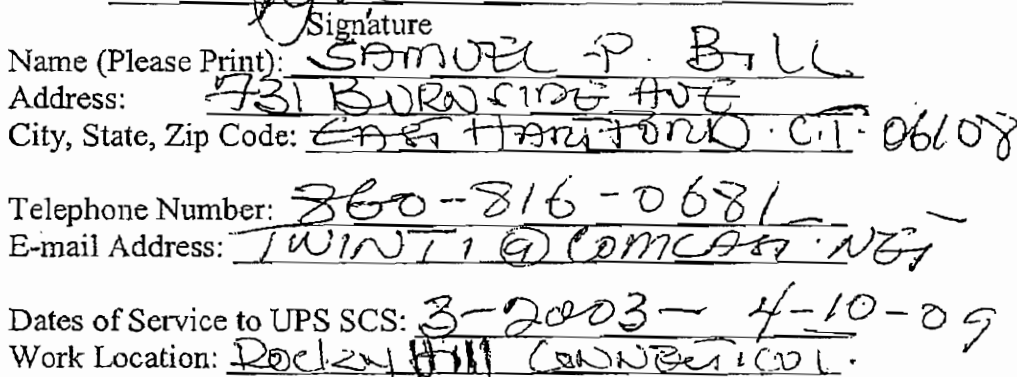 Signature
Name (Please Print): SAMUEL P. BILL
Address: 731 BURNSIDE AVE
City, State, Zip Code: EAST HARTFORD. CT. 06108
Telephone Number: 860-816-0681
E-mail Address: TWINT1@COMCAST.NET
Dates of Service to UPS SCS: 3-2003- 4-10-09
Work Location: Rocky Hill CONNETICUT.